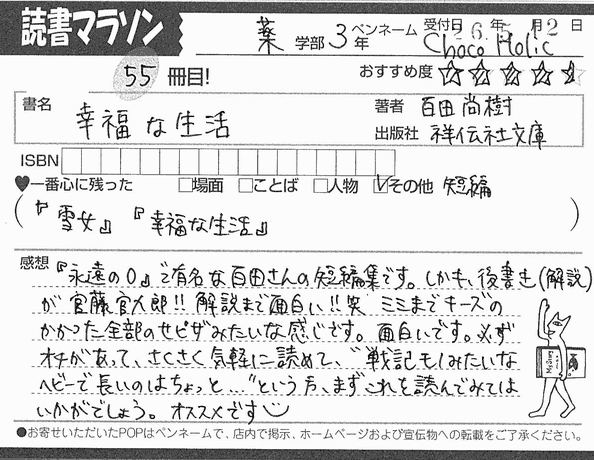 読書マラソン
薬 学部 3年 ペンネーム 受付日 26年5月12日
Choco Holic
55 冊目! おすすめ度 ☆☆☆☆☆
書名 幸福な生活
著者 百田尚樹
出版社 祥伝社文庫
ISBN
♥一番心に残った □場面 □ことば □人物 ☑その他 短編
(『雪女』『幸福な生活』)
感想 『永遠の0』で有名な百田さんの短編集です。しかも、後書き(解説)
が 宮藤官九郎!! 解説まで面白い!!笑 ミミまでチーズの
かかった全部のせピザみたいな感じです。面白いです。必ず
オチがあって、さくさく気軽に読めて、"戦記モノみたいな
ヘビーで長いのはちょっと…"という方、まずこれを読んでみては
いかがでしょう。オススメです
●お寄せいただいたPOPはペンネームで、店内で掲示、ホームページおよび宣伝物への転載をご了承ください。